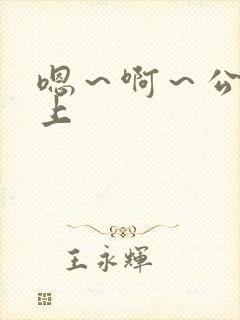 嗯～啊～公
上
王永輝